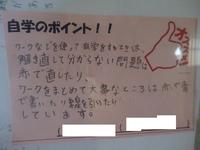 自学のポイント！！
オススメ
ワークなどを使って自学をするときは、
解き直して分からない問題は
赤で直したり、
ワークをまとめて大事なところは赤や青
で書いたり線を引いたり
しています。